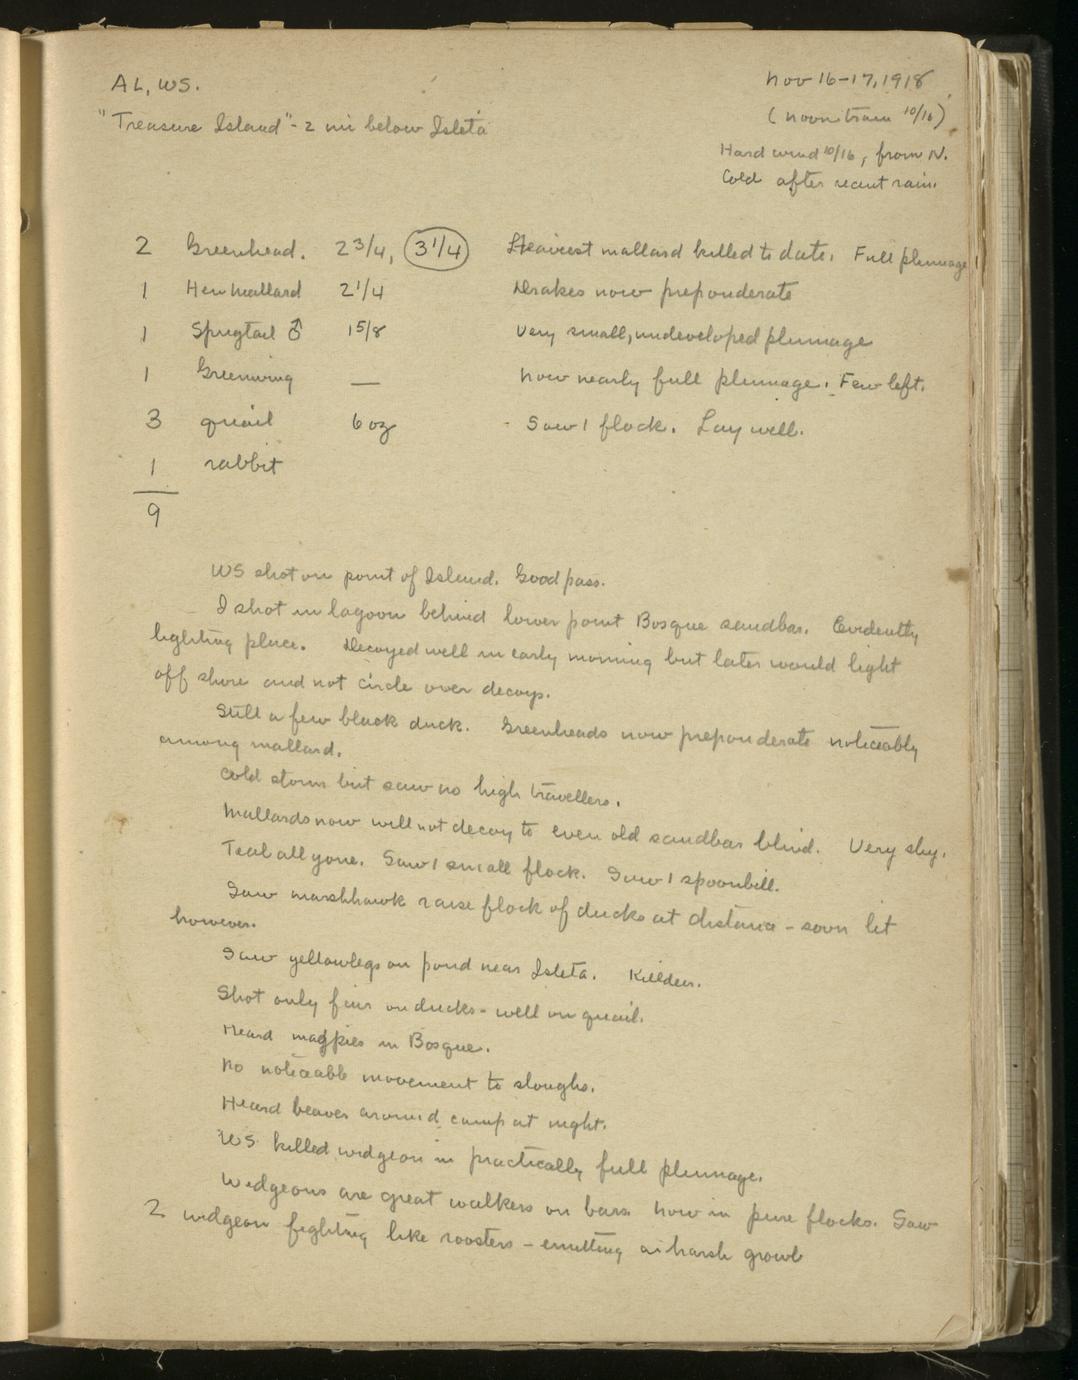 AL, WS.
Nov 16-17, 1918
"Treasure Island" - 2 mi below Isleta
(noon train 10/16)
Hard wind 10/16, from N.
Cold after recent rain.
2 Greenhead. 2 3/4, 3 1/4 Heaviest mallard killed to date. Full plumage
1 Hen mallard 2 1/4 Drakes now preponderate
1 Sprigtail ♂ 1 5/8 Very small, undeveloped plumage
1 Greenwing — Now nearly full plumage. Few left.
3 quail 6 oz Saw 1 flock. Lay well.
1 rabbit
9
WS shot on point of Island. Good pass.
I shot in lagoon behind lower point Bosque sandbar. Evidently
lighting place. Decoyed well in early morning but later would light
off shore and not circle over decoys.
Still a few black duck. Greenheads now preponderate noticeably
among mallard.
Cold storm but saw no high travellers.
Mallards now will not decoy to even old sandbar blind. Very shy.
Teal all gone. Saw 1 small flock. Saw 1 spoonbill.
Saw marshhawk raise flock of ducks at distance - soon lit
however.
Saw yellowlegs on pond near Isleta. Killdeer.
Shot only fair on ducks - well on quail.
Heard magpies in Bosque.
No noticeable movement to sloughs.
Heard beaver around camp at night.
WS killed widgeon in practically full plumage.
Widgeons are great walkers on bars. Now in pure flocks. Saw
2 widgeon fighting like roosters - emitting a harsh growl